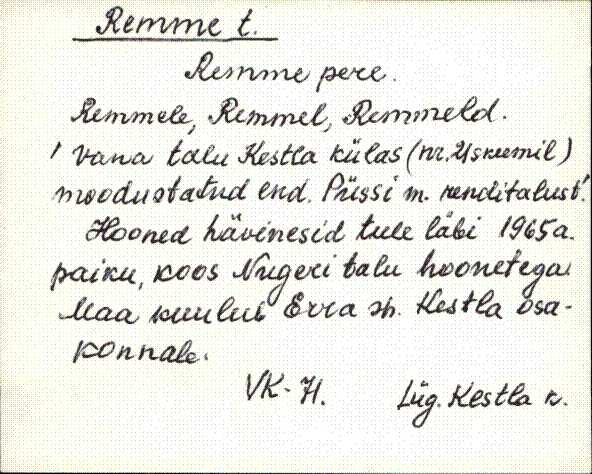 Remme t.
Remme pere.
Remmele, Remmel, Remmeld.
' vana talu Kestla külas (nr.
moodustatud end. Püssi m. renditalust'.
Hooned hävinesid tule läbi 1965a.
paiku, koos Nugeri talu hoonetega.
Maa kuulub Erra sh. Kestla osa-
konnale.
VK-H. Lüg. Kestla k.